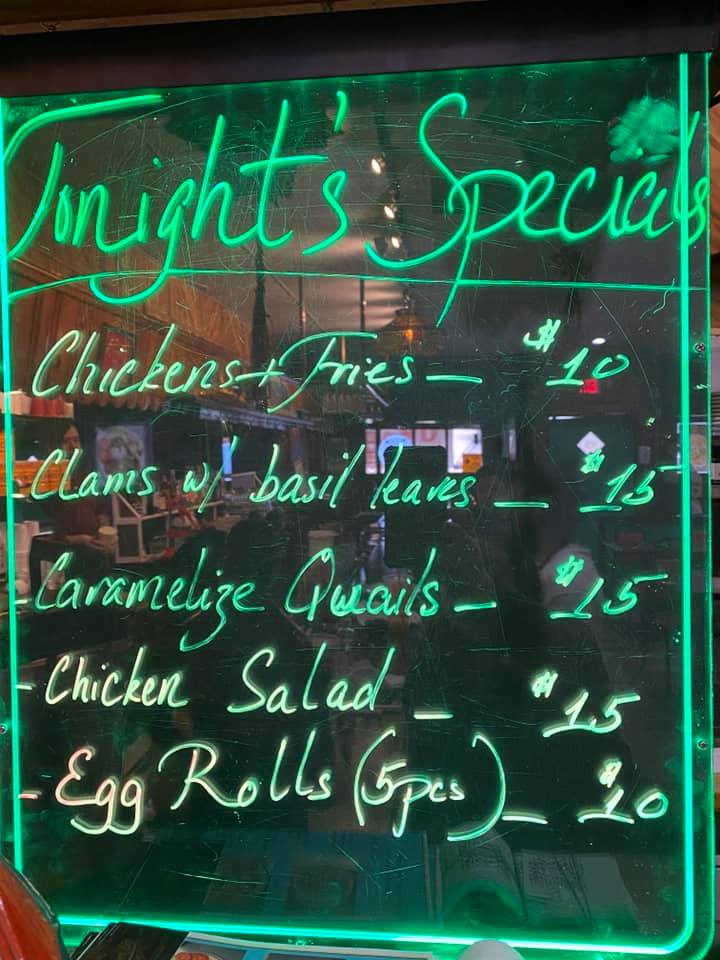 Tonight's Specials
Chickens + Fries — $10
Clams w/ basil leaves — $15
- Caramelize Quails — $15
- Chicken Salad — $15
- Egg Rolls (5pcs) — $10